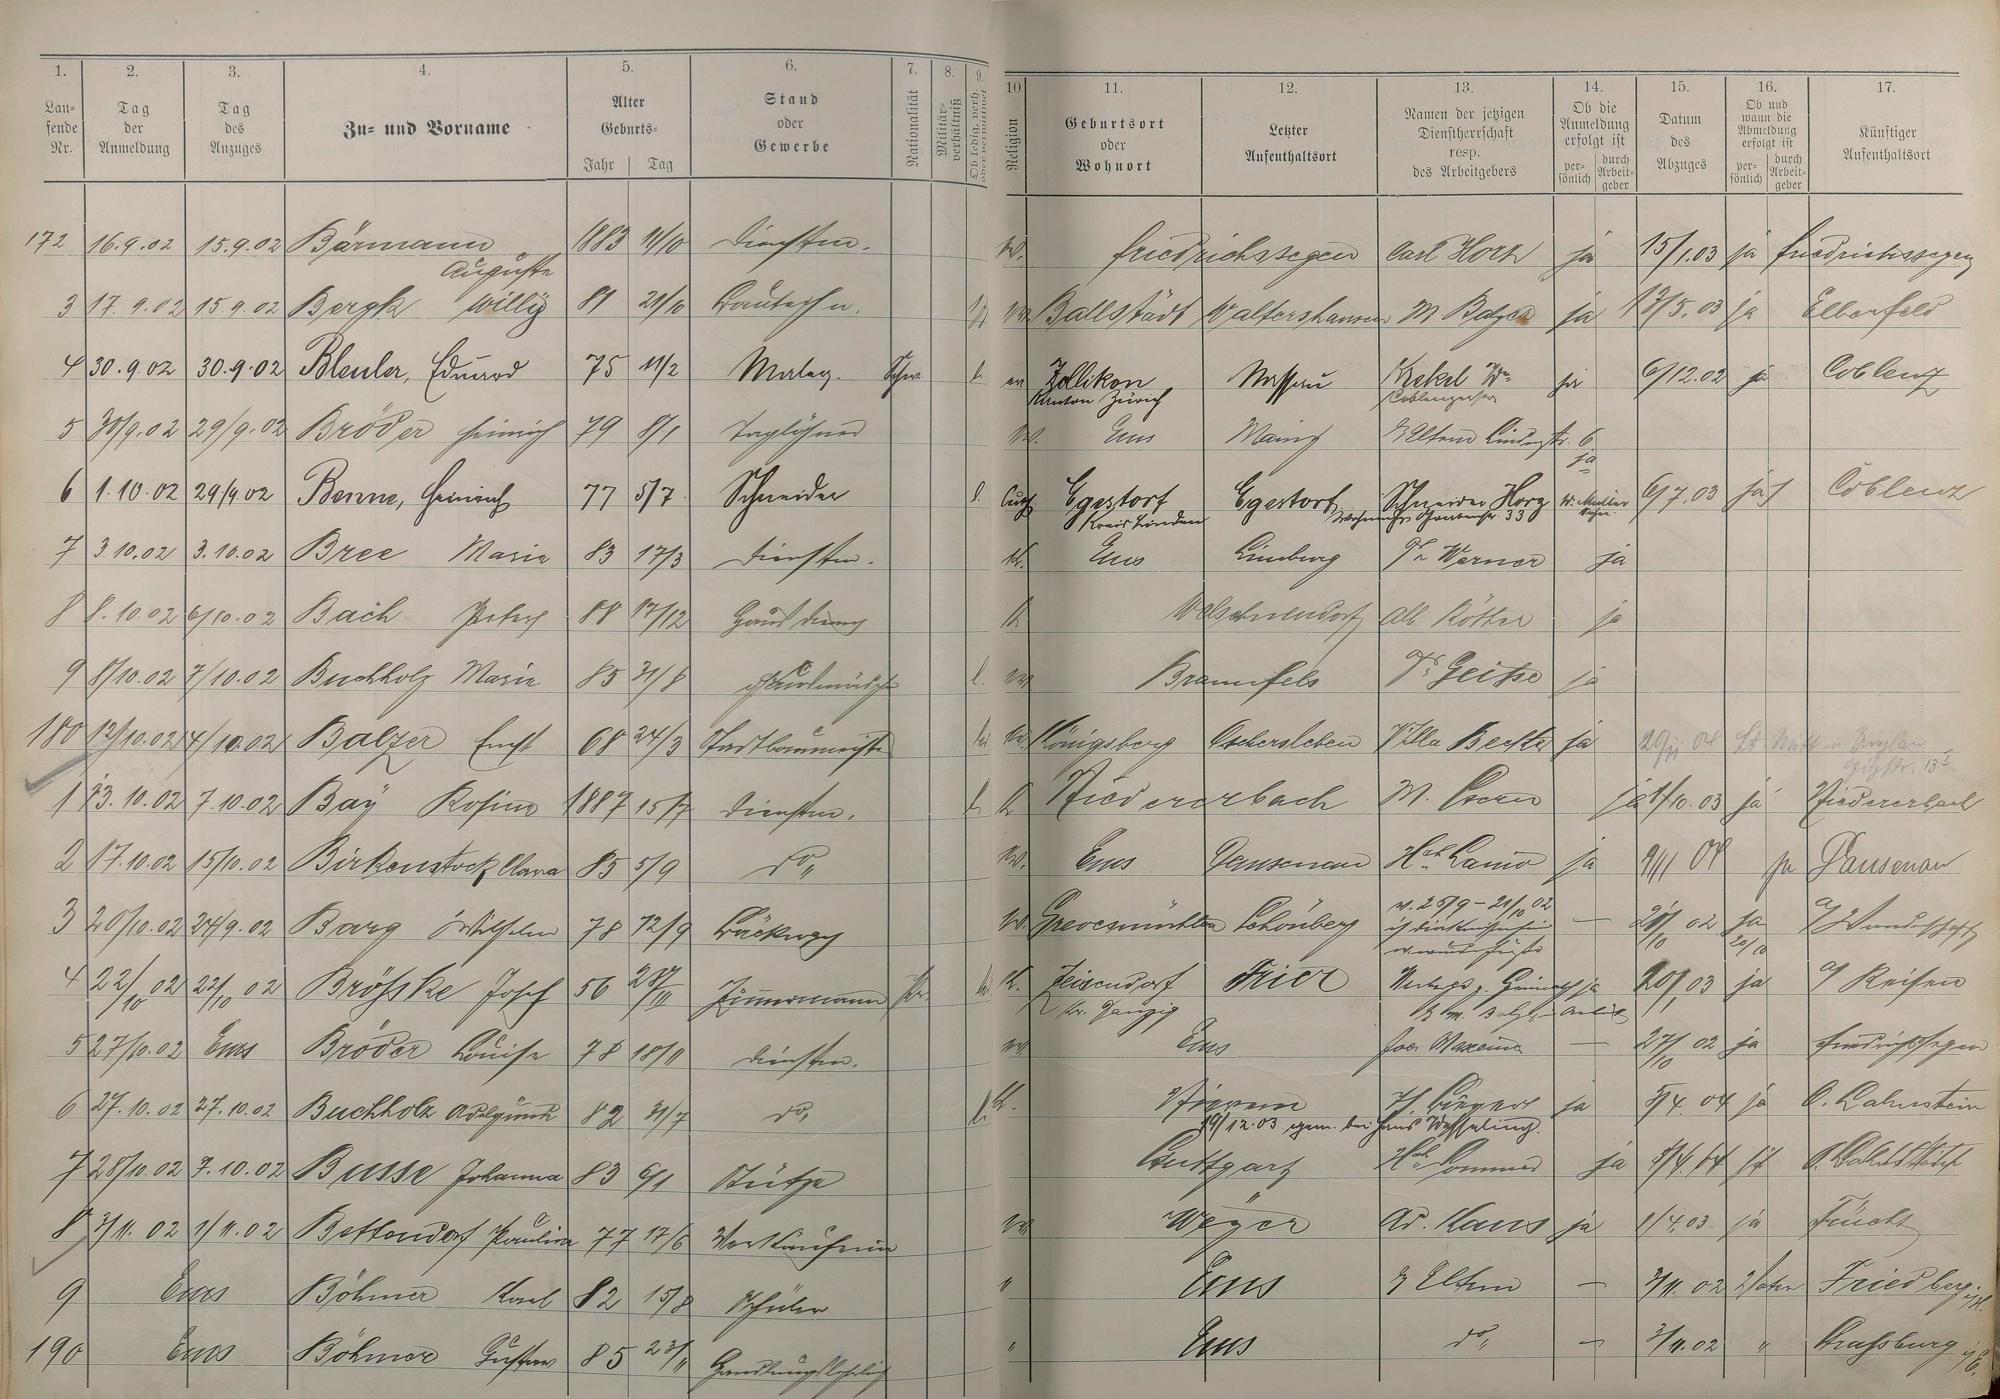 1. 2. 3. 4. 5. 6. 7. 8. 9. 10 11. 12. 13. 14. 15. 16. 17.
Lau-
fende
Nr.
Tag
der
Anmeldung
Tag
des
Anzuges
Zu- und Vorname
Alter
Geburts-
Jahr Tag
Stand
oder
Gewerbe
Nationalität
Militär-
verhältniß
Ob ledig, verh.
oder verwittwet
Religion
Geburtsort
oder
Wohnort
Letzter
Aufenthaltsort
Namen der jetzigen
Dienstherrschaft
resp.
des Arbeitgebers
Ob die
Anmeldung
erfolgt ist
per-
sönlich
durch
Arbeit-
geber
Datum
des
Abzuges
Ob und
wann die
Abmeldung
erfolgt ist
per-
sönlich
durch
Arbeit-
geber
Künftiger
Aufenthaltsort
172 16.9.02 15.9.02 Bärmann 1883 11/10 Dienstm. Friedrichssegen Carl Horn ja 15/1.03 ja Friedrichssegen
Auguste
3 17.9.02 15.9.02 Bergk Willy 81 21/10 Ballstädt Waltershausen M Balzer ja 13/5.03 ja Elberfeld
4 30.9.02 30.9.02 Bleuler, Eduard 75 11/2 Maler. Schw. l. ev Zollikon Nassau Krekel Ww ja 6/12.02 ja Coblenz
Kanton Zürich Coblenzerstr
5 30/9.02 29/9.02 Bröder Heinrich 79 8/1 Taglöhner Ems Mainz Eltern Lindenstr. 6
ja
6 1.10.02 29/9.02 Benne, Heinrich 77 5/7 Schneider l. Egestorf Egestorf Schneider Horz 6/7.03 ja Coblenz
Kreis Linden 33
7 3.10.02 3.10.02 Bree Maria 83 17/3 Dienstm. K. Ems Limburg Fr Werner ja
8 8.10.02 6/10.02 Bach Peter 88 17/12 Hausdiener K Welschneudorf Alb. Kötter ja
9 8/10.02 7/10.02 Buchholz Maria 85 31/8 Hausmädchen l. Braunfels Dr. Geisse ja
180 12/10.02 4/10.02 Balzer Ernst 68 24/3 Stadtbaumeister Königsberg Oschersleben Villa Becker ja 04
1 13.10.02 7.10.02 Bay Rosina 1887 15/7 Dienstm. l. K Niedererbach M. ja 1/10.03 ja Niedererbach
2 17.10.02 15/10.02 Birkenstock Clara 85 5/9 do " Ems Dausenau ja 9/11 04 ja Dausenau
3 20/10.02 24/9.02 Barg Wilhelm 78 12/9 Bäcker Grevesmühlen Schönberg v. 25/9 – 21/10 02 — 02 ja a/ Wanderschaft
20/10
4 22/10 02 22/10 02 Bröske Josef 56 28/11 Zimmermann Pr. K. Trier 20/1 03 ja a/ Reisen
Kr. Danzig
5 27/10.02 Ems Bröder Louise 78 18/11 Dienstm. Ems Jos. — 27/10 02 ja Friedrichssegen
6 27.10.02 27.10.02 Buchholz Adelgunde 82 31/7 do, l K. ja 3/4.04 ja O. Lahnstein
19/12.03 bei Hans
7 28/10.02 7.10.02 Busse Johanna 83 6/1 Stütze Stuttgart ja
8 3/11.02 1/11.02 Bettendorf Paulina 77 17/6 Verkäuferin Weyer Ad. Haus ja 1/4.03 ja Frücht
9 Ems Böhmer Karl 82 15/8 Schüler " Ems Eltern — 3/11.02 Vater Friedberg
190 Ems Böhmer Gustav 85 23/11 Handlungslehrling " Ems do " — 3/11.02 " Strassburg i/E.